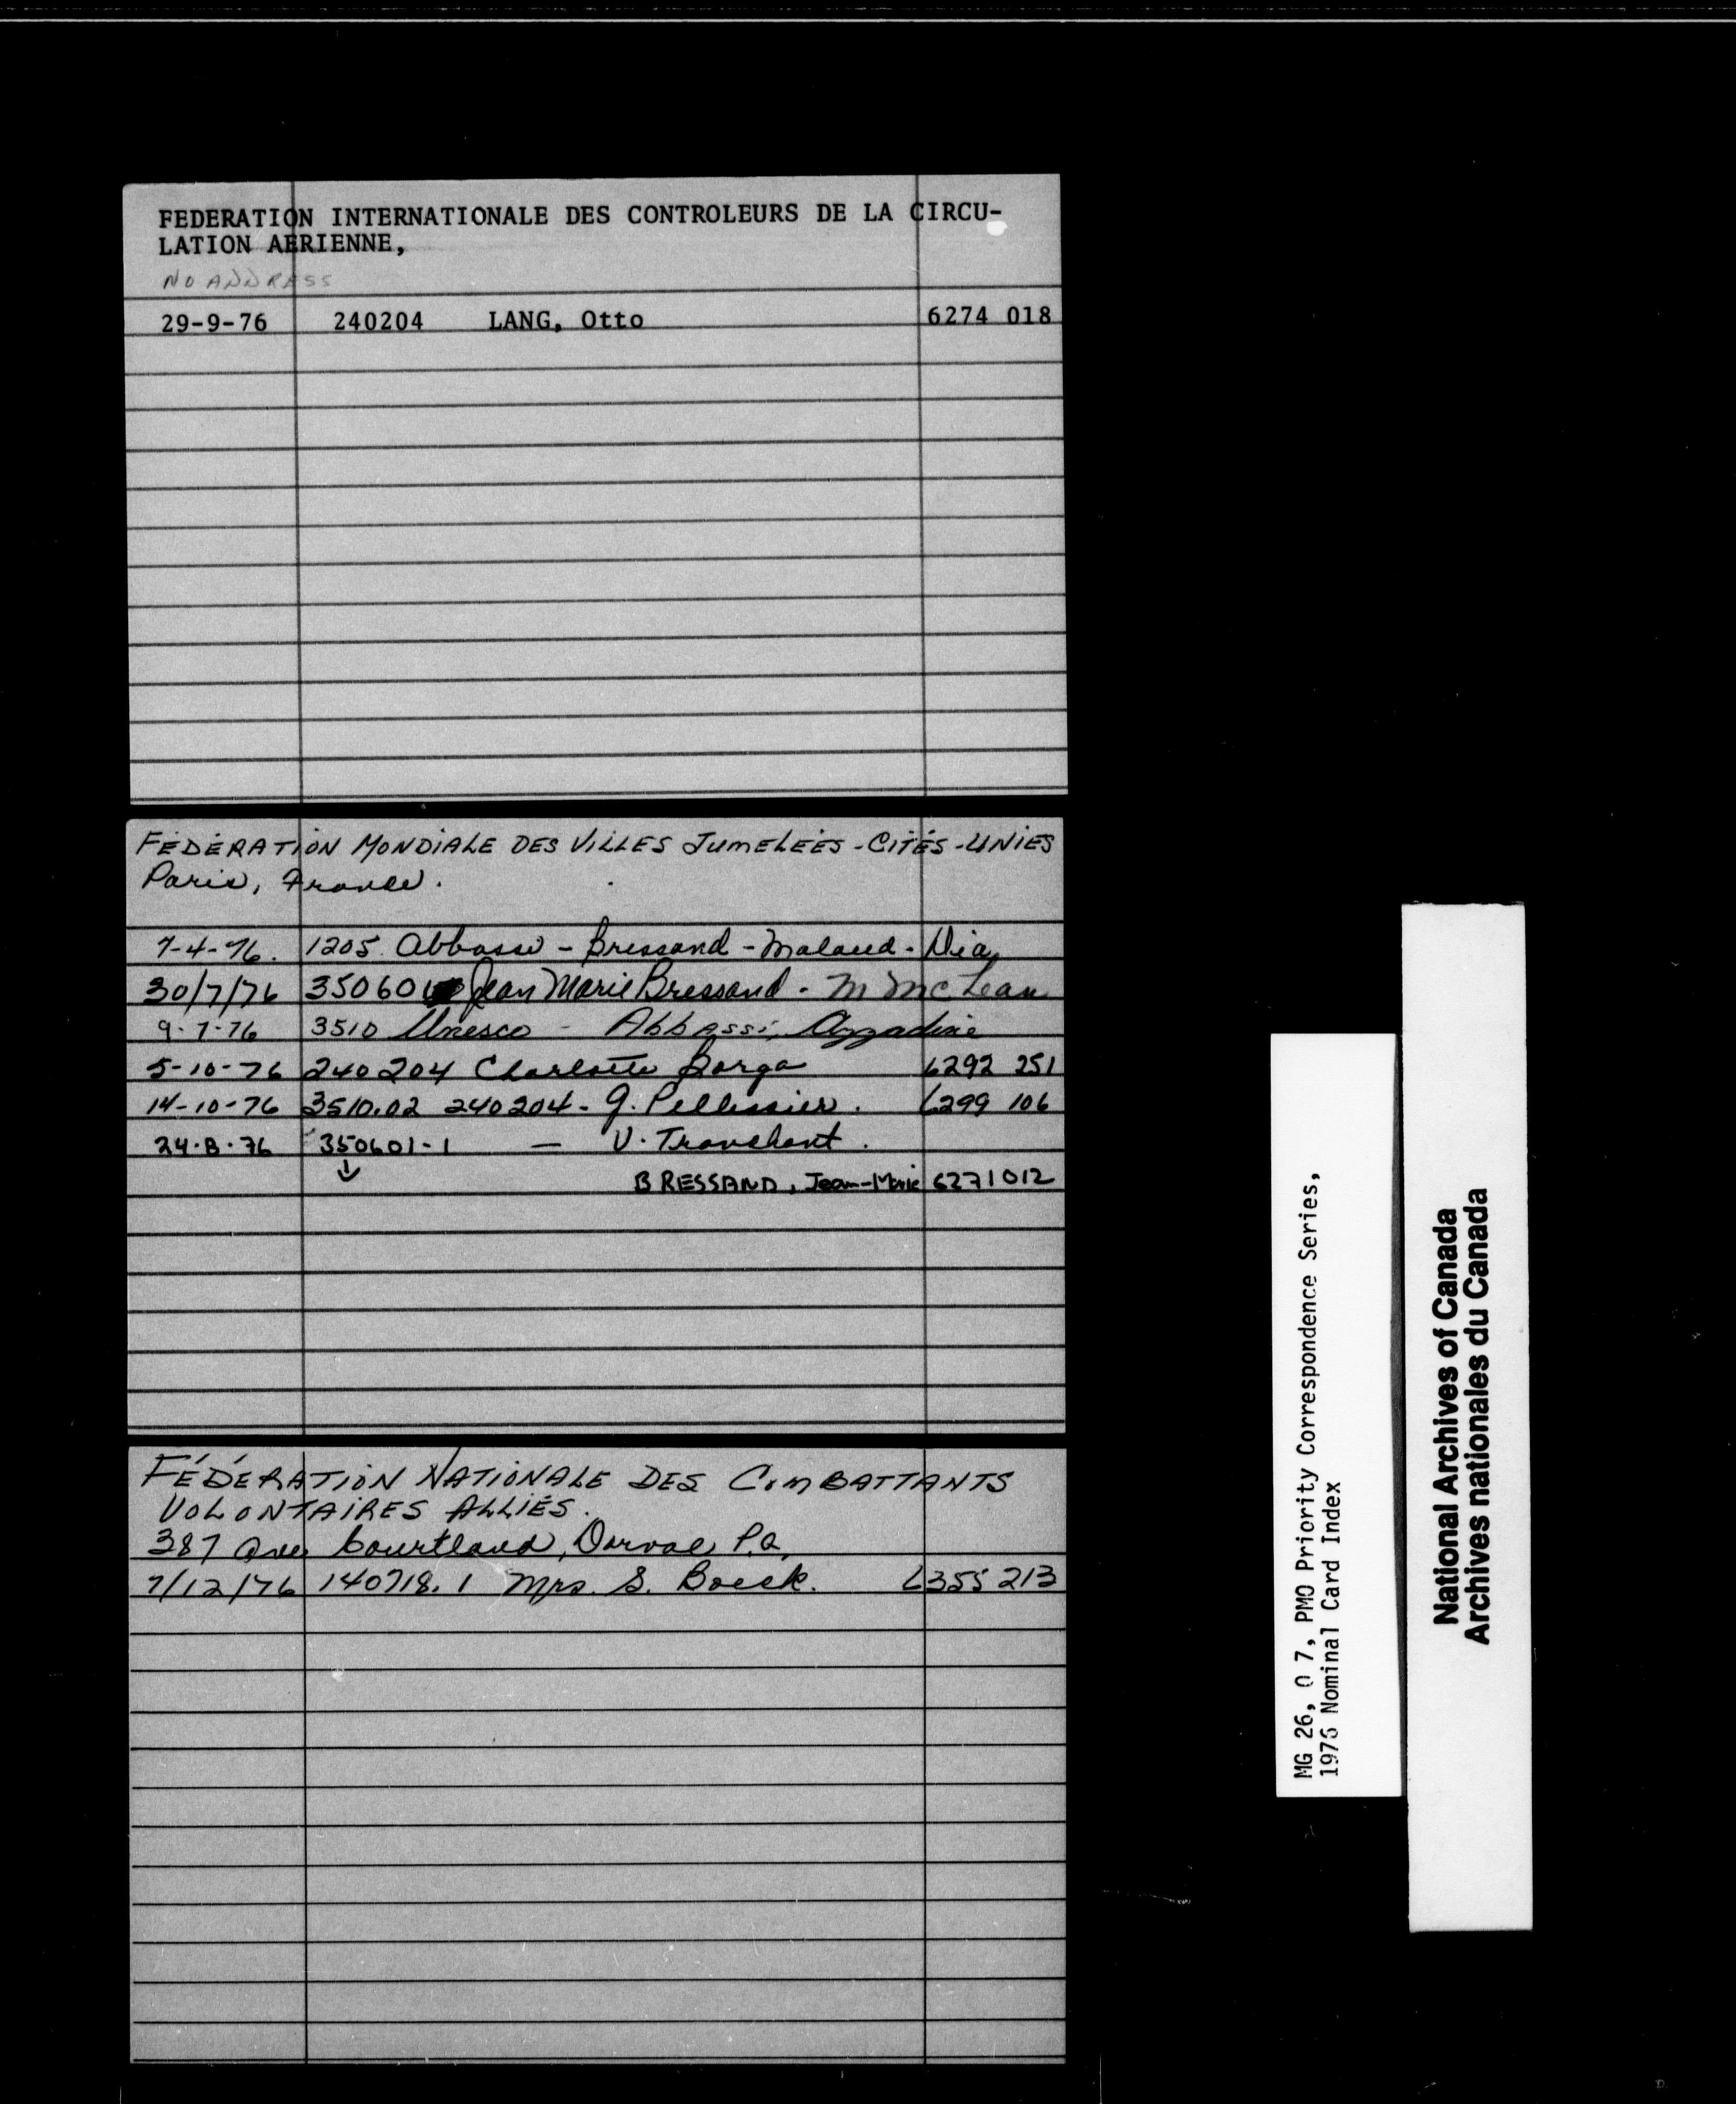 FEDERATION INTERNATIONALE DES CONTROLEURS DE LA CIRCU-
LATION AERIENNE,
NO ADDRESS
29-9-76 240204 LANG, Otto 6274 018
FÉDÉRATION MONDIALE DES VILLES JUMELÉES - CITÉS - UNIES
Paris, France.
7-4-76. 1205. Abbassi - Bressand - Malaud - Dia
30/7/76 350601 Jean Marie Bressand - M McLean
9-7-76 3510 Unesco - Abbassi, Azzadine
5-10-76 240204 Charlotte Borga 6292 251
14-10-76 3510.02 240204 - G. Pellissier. 6299 106
24-8-76 350601-1 — V. Tranchant.
↓ BRESSAND, Jean-Marie 6271012
FÉDÉRATION NATIONALE DES COMBATTANTS
VOLONTAIRES ALLIÉS.
387 Ave Courtland, Dorval P.Q.
7/12/76 140718.1 Mrs. S. Boeck. 6355 213
MG 26, O 7, PMO Priority Correspondence Series,
1976 Nominal Card Index
National Archives of Canada
Archives nationales du Canada